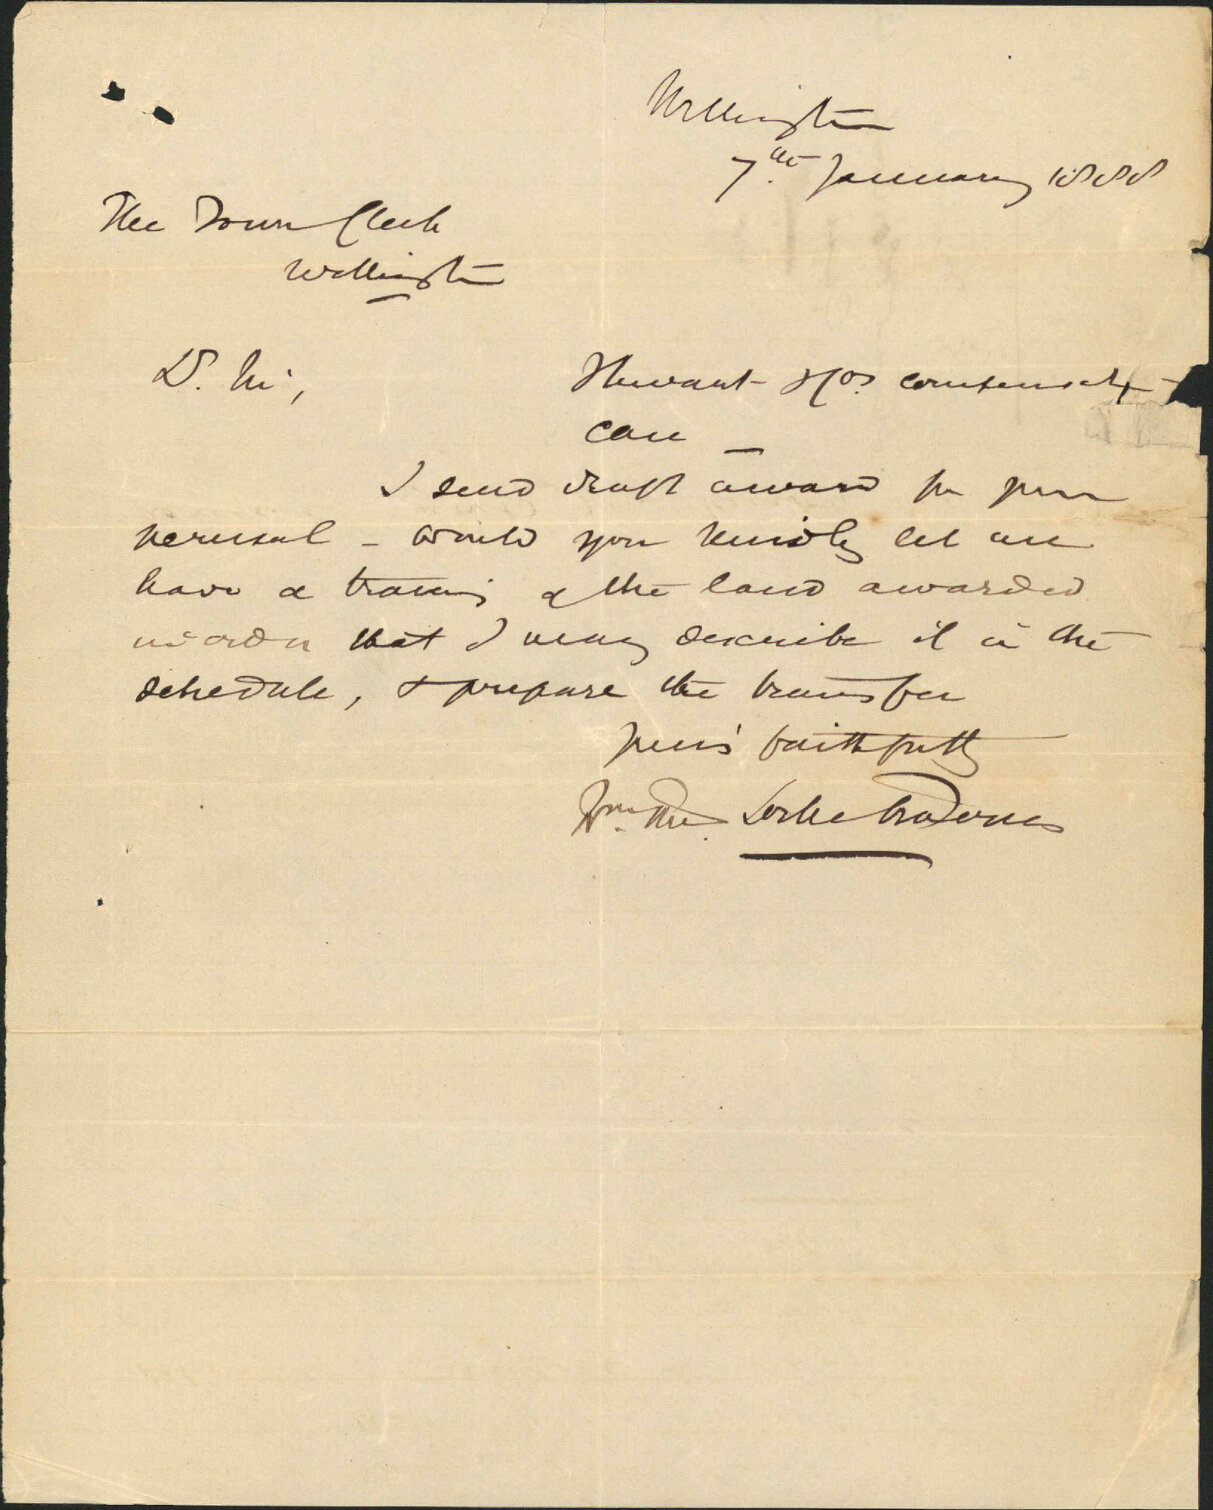 Wellington
7th January 1888
The Town Clerk
Wellington
D. Sir,
compensat
case
I send draft award for your
perusal - would you kindly let me
have a tracing of the land awarded
in order that I may describe it in the
schedule, & prepare the transfer
Yours faithfully
Wm. Thos. Locke Travers